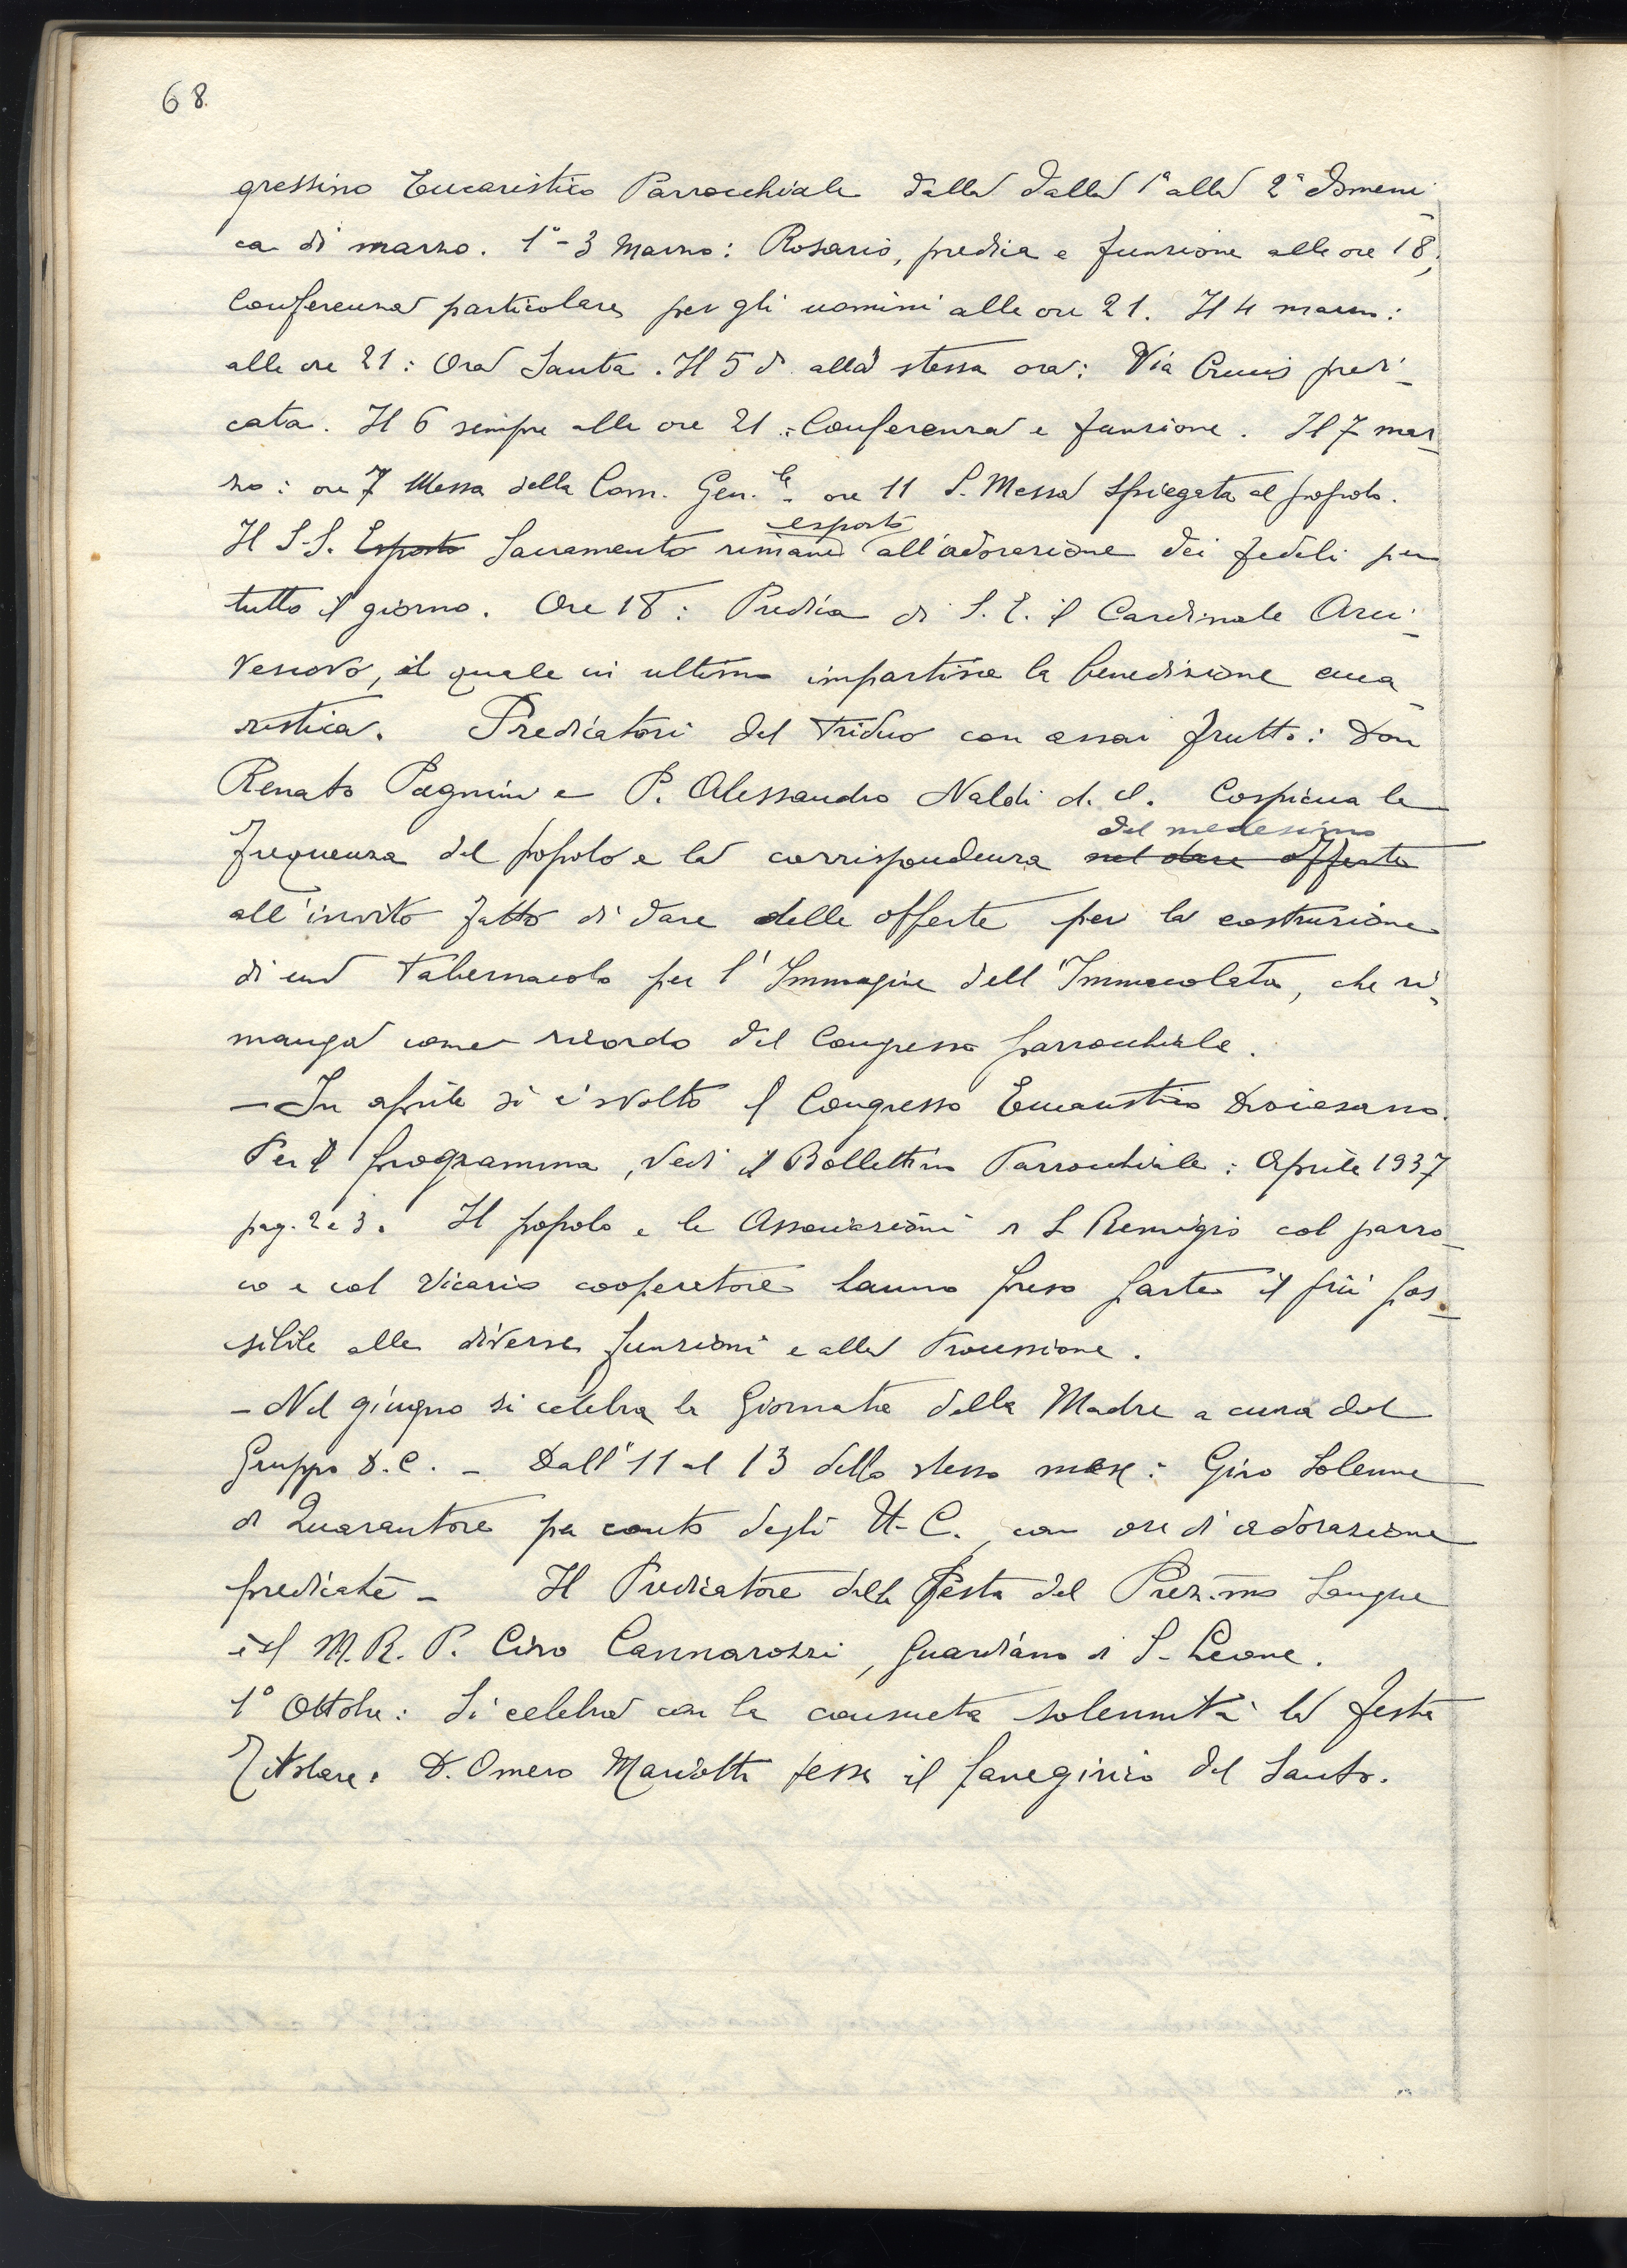 68.
gressino Eucaristico Parrocchiale dalla dalla 1ª alla 2ª domeni-
ca di marzo. 1°-3 Marzo: Rosario, predica e funzione alle ore 18;
Conferenza particolare per gli uomini alle ore 21. Il 4 marzo:
alle ore 21: Ora Santa. Il 5 d. alla stessa ora: Via Crucis predi-
cata. Il 6 sempre alle ore 21: Conferenza e funzione. Il 7 mar-
zo: ore 7 Messa della Com. Gen.le - ore 11 S. Messa spiegata al popolo.
esposto
Il S.S. Esposto Sacramento rimane all'adorazione dei fedeli per
tutto il giorno. Ore 18: Predica di S. E. il Cardinale Arci-
vescovo, il quale in ultimo impartisce la benedizione euca-
ristica. Predicatori del triduo con assai frutto: Don
Renato Pagnini e P. Alessandro Naldi d. Cospicua la
del medesimo
frequenza del popolo e la corrispondenza nel dare offerte
all'invito fatto di dare delle offerte per la costruzione
di un Tabernacolo per l'Immagine dell'Immacolata, che ri-
manga come ricordo del Congresso parrocchiale.
- In aprile si è svolto il Congresso Eucaristico Diocesano.
Per il programma, vedi il Bollettino Parrocchiale: Aprile 1937
pag. 2 e 3. Il popolo e le Associazioni di S. Remigio col parro-
co e col Vicario cooperatore hanno preso parte il più pos-
sibile alle diverse funzioni e alla Processione.
- Nel giugno si celebra la Giornata della Madre a cura del
Gruppo D.C. - Dall'11 al 13 dello stesso mese: Giro Solenne
di Quarantore per conto degli U.C., con ore di adorazione
predicate - Il Predicatore della Festa del Prez.mo Sangue
è il M. R. P. Ciro Cannarozzi, Guardiano di S. Leone.
1° Ottobre: Si celebra con la consueta solennità la festa
Titolare. D. Omero Mariotti tesse il panegirico del Santo.